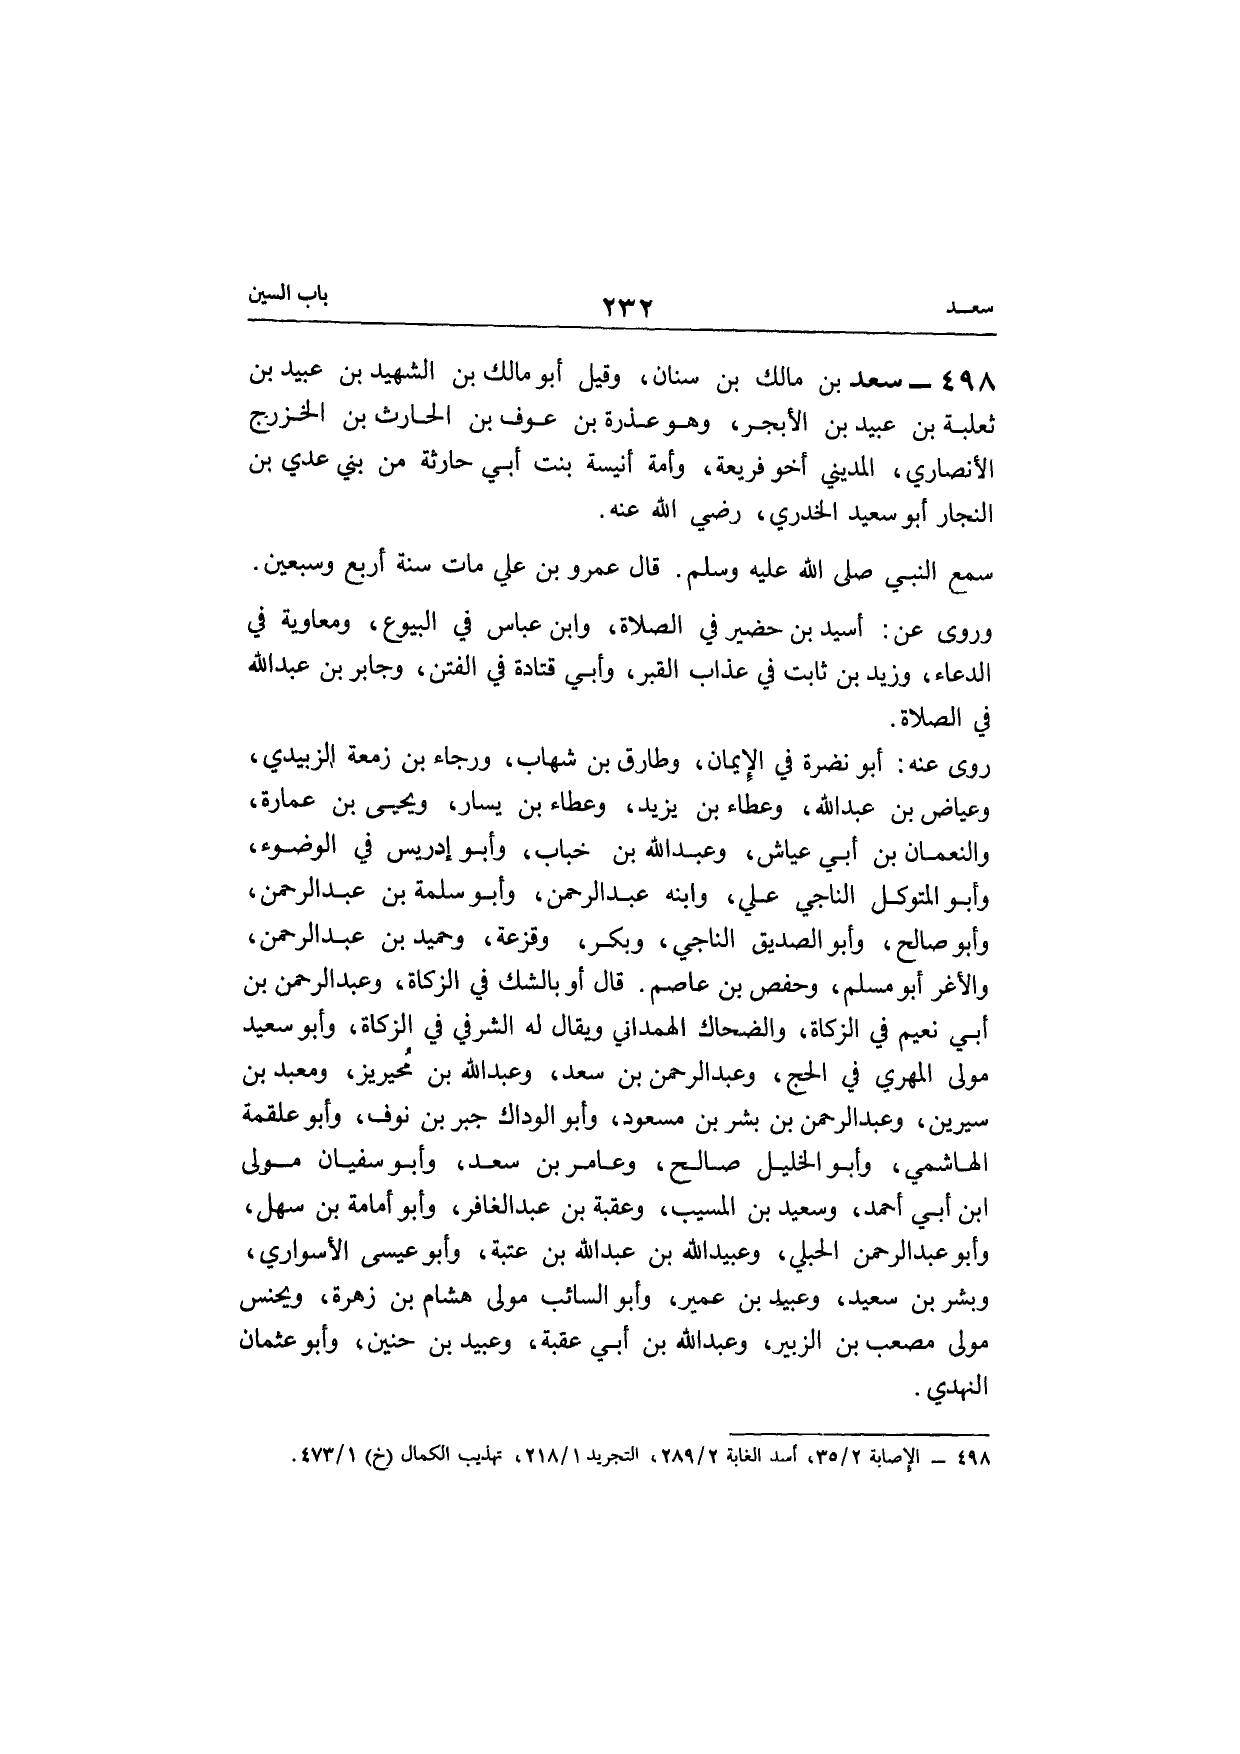 سعـد ٢٣٢ باب السين
٤٩٨ ــ سعد بن مالك بن سنان، وقيل أبو مالك بن الشهيد بن عبيد بن
ثعلبـة بن عبيد بن الأبجـر، وهـو عـذرة بن عـوف بن الحـارث بن الخـزرج
الأنصاري، المديني أخو فريعة، وأمة أنيسة بنت أبـي حارثة من بني عدي بن
النجار أبو سعيد الخدري، رضي الله عنه.
سمع النبـي صلى الله عليه وسلم. قال عمرو بن علي مات سنة أربع وسبعين.
وروى عن: أسيد بن حضير في الصلاة، وابن عباس في البيوع، ومعاوية في
الدعاء، وزيد بن ثابت في عذاب القبر، وأبـي قتادة في الفتن، وجابر بن عبدالله
في الصلاة.
روى عنه: أبو نضرة في الإيمان، وطارق بن شهاب، ورجاء بن زمعة الزبيدي،
وعياض بن عبدالله، وعطاء بن يزيد، وعطاء بن يسار، ويحيـى بن عمارة،
والنعمـان بن أبـي عياش، وعبـدالله بن خباب، وأبـو إدريس في الوضـوء،
وأبـو المتوكـل الناجي عـلي، وابنه عبـدالرحمن، وأبـو سلمة بن عبـدالرحمن،
وأبو صالح، وأبو الصديق الناجي، وبكـر، وقزعة، وحميد بن عبـدالرحمن،
والأغر أبو مسلم، وحفص بن عاصم. قال أو بالشك في الزكاة، وعبدالرحمن بن
أبـي نعيم في الزكاة، والضحاك الهمداني ويقال له الشرفي في الزكاة، وأبو سعيد
مولى المهري في الحج، وعبدالرحمن بن سعد، وعبدالله بن مُحيريز، ومعبد بن
سيرين، وعبدالرحمن بن بشر بن مسعود، وأبو الوداك جبر بن نوف، وأبو علقمة
الهـاشمي، وأبـو الخليل صـالـح، وعـامـر بن سعـد، وأبـو سفيـان مـولى
ابن أبـي أحمد، وسعيد بن المسيب، وعقبة بن عبدالغافر، وأبو أمامة بن سهل،
وأبو عبدالرحمن الحبلي، وعبيدالله بن عبدالله بن عتبة، وأبو عيسى الأسواري،
وبشر بن سعيد، وعبيد بن عمير، وأبو السائب مولى هشام بن زهرة، ويحنس
مولى مصعب بن الزبير، وعبدالله بن أبـي عقبة، وعبيد بن حنين، وأبو عثمان
النهدي.
٤٩٨ ــ الإصابة ٣٥/٢، أسد الغابة ٢٨٩/٢، التجريد ٢١٨/١، تهذيب الكمال (خ) ٤٧٣/١.